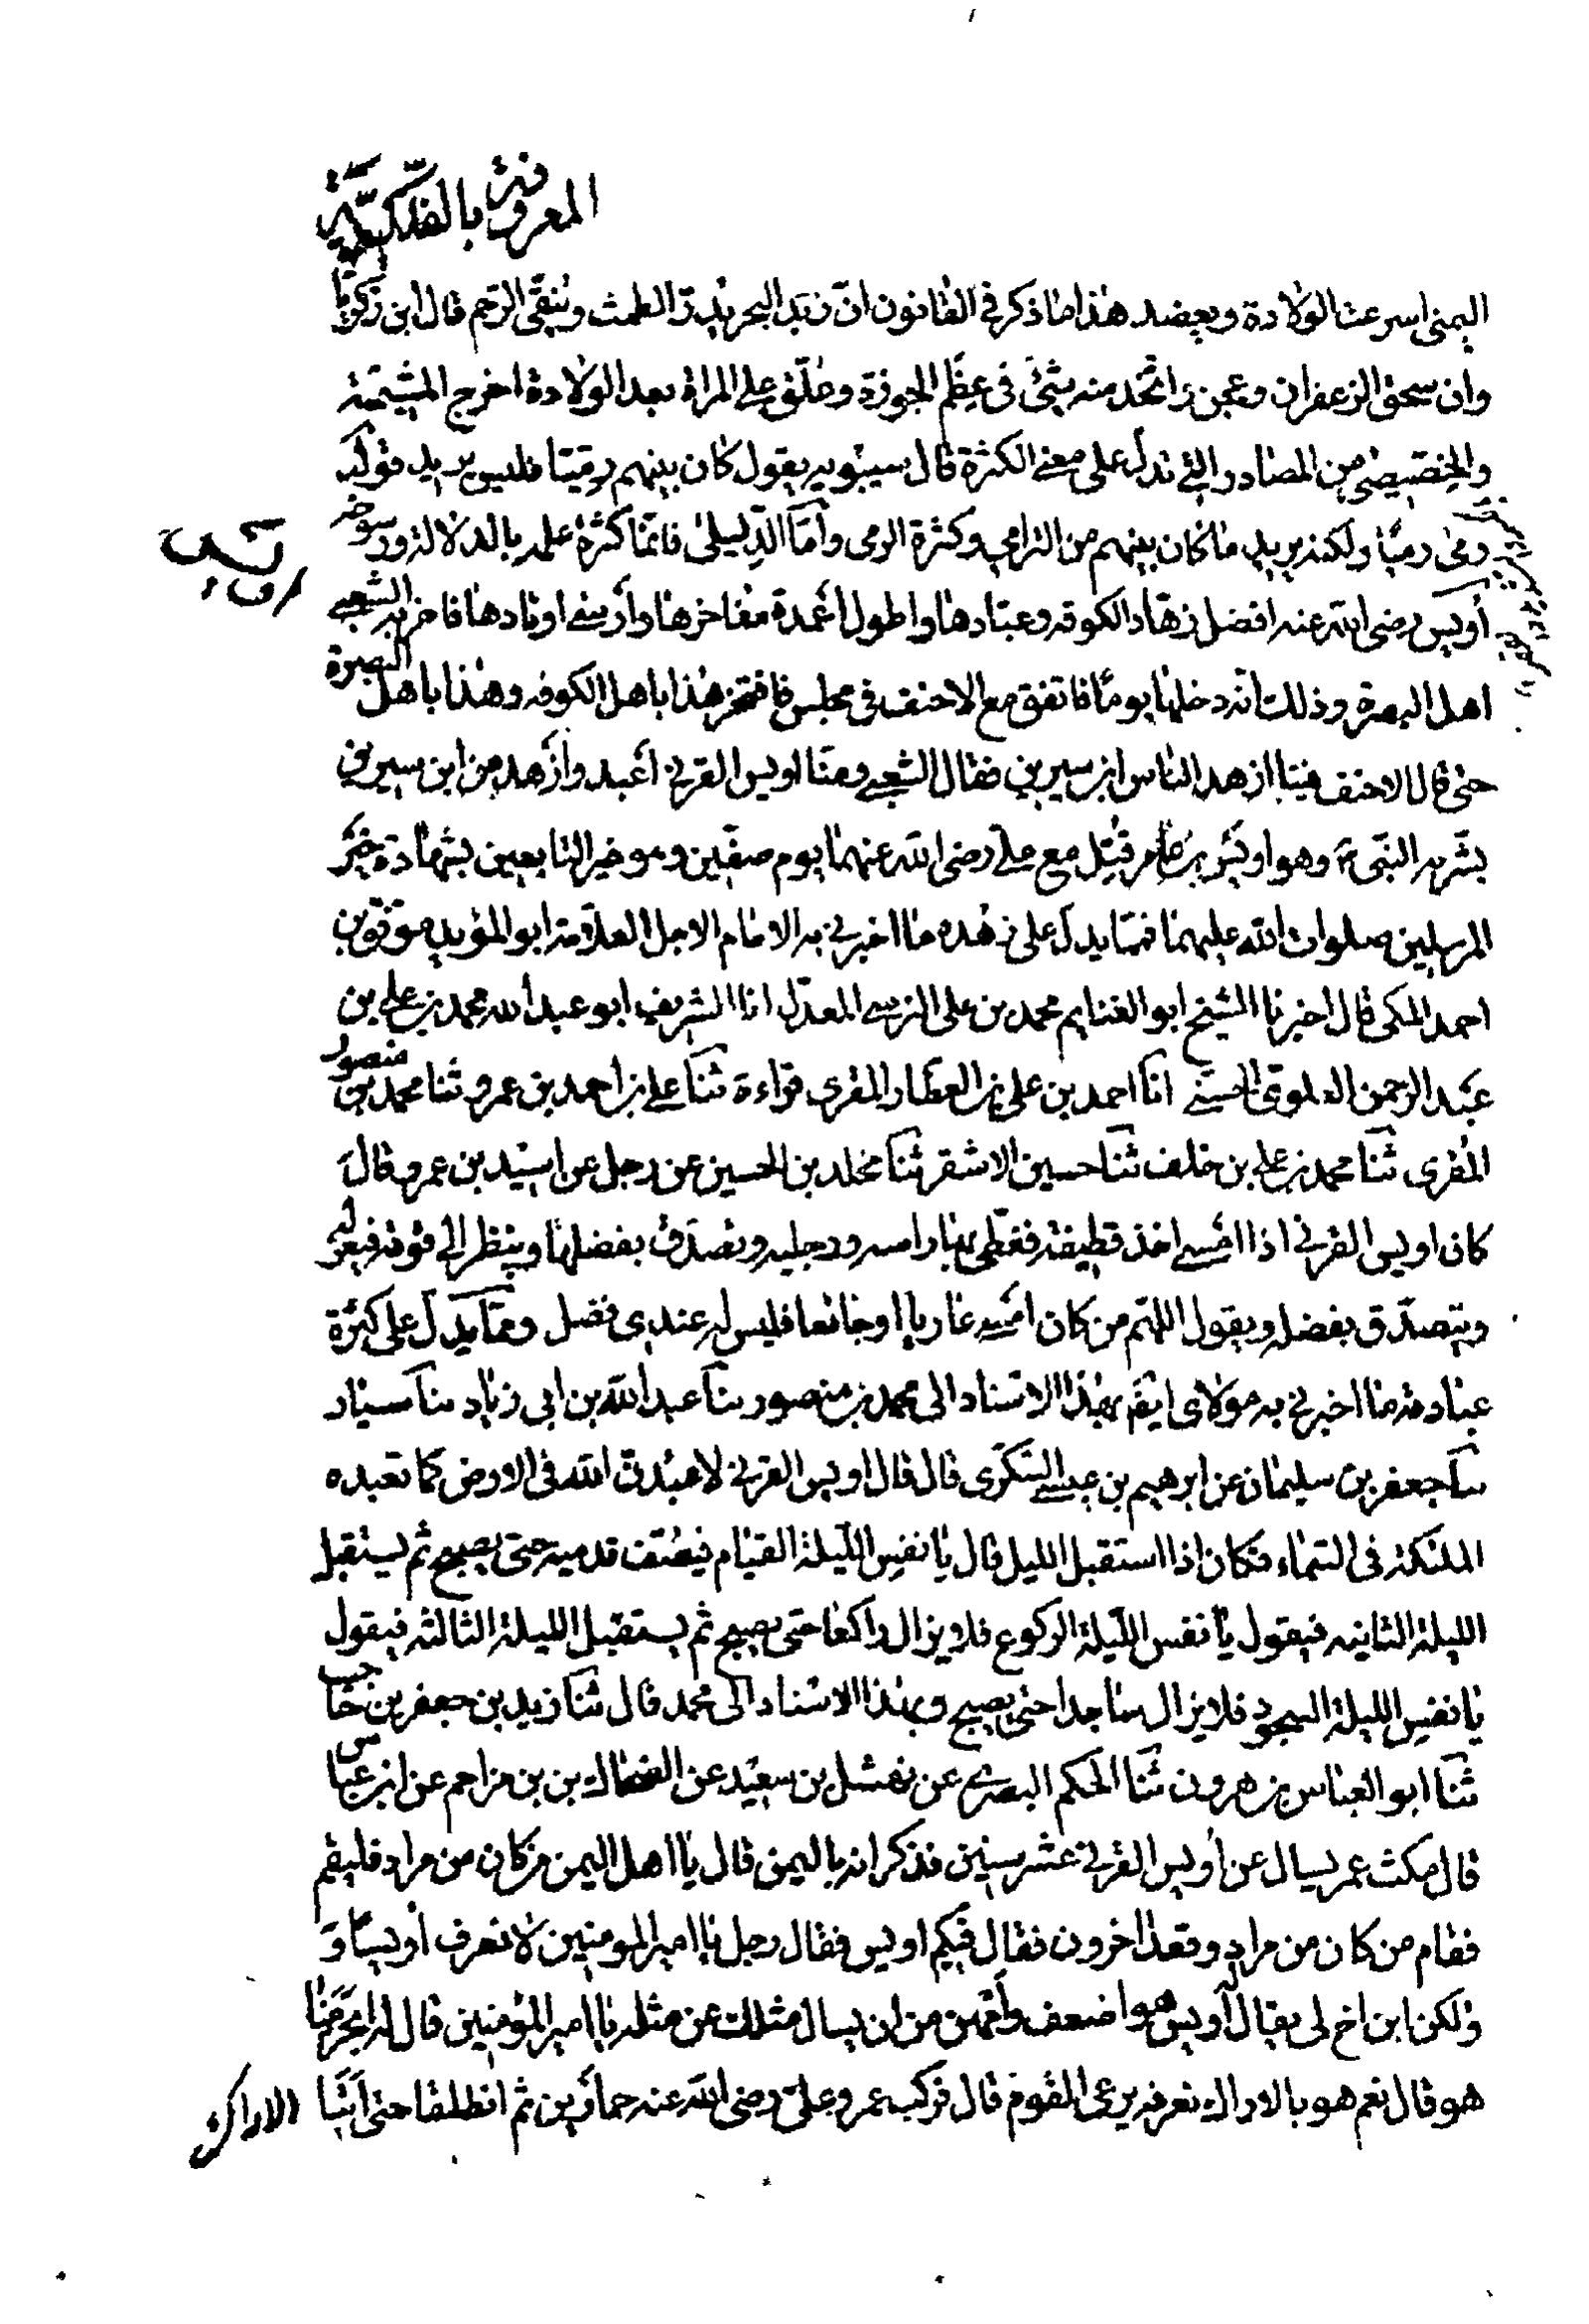 المعروفة بالفلكية
اليمنى اسرعت الولادة ويعضد هذا ما ذكر في القانون ان زبد البحر يدرّ الطمث وينقّى الرحم قال ابن زكريا
وان سحق الزعفران وعجن واتخذ منه شئ في عظم الجوزة وعلّق على المراة بعد الولادة اخرج المشيمة
والخصّيصى من المصادر التى تدل على معنى الكثرة قال سيبويه يقول كان بينهم رميّا فليس يريد قولك
رمى رميا ولكنه يريد ما كان بينهم من الترامى وكثرة الرمى وأما الدّليلى فانما كثرة علمه بالدلالة ورسوخه
أويس رضى الله عنه افضل زهاد الكوفه وعبّادها واطول اعمدة مفاخرها وأرسى اوتادها فاخر به الشعبى
اهل البصرة وذلك انه دخلها يوما فاتفق مع الاحنف في مجلس فافتخر هذا باهل الكوفه وهذا باهل البصرة
حتى قال الاحنف فينا ازهد الناس ابن سيرين فقال الشعبى ومنا اويس القرنى اعبد وأزهد من ابن سيرين
بشّر به النبى وهو اويس بن عامر قتل مع على رضى الله عنهما يوم صفّين وهو خير التابعين بشهادة خير
المرسلين صلوات الله عليهما فمما يدل على زهده ما اخبرنى به الامام الاجل العلّامة ابو المؤيد موفق بن
احمد المكى قال اخبرنا الشيخ ابو الغنايم محمد بن على النرسى المعدّل انا الشريف ابو عبد الله محمد بن على بن
عبد الرحمن العلوى الحسنى انا احمد بن على بن العطار المقرى قراءة ثنا على بن احمد بن عمرو ثنا محمد بن منصور
المقرى ثنا محمد بن على بن خلف ثنا حسين الاشقر ثنا مخلد بن الحسين عن رجل عن اسيد بن عمرو قال
كان اويس القرنى اذا امسى اخذ قطيفة فغطى بها راسه ورجليه وتصدق بفضلها وينظر الى قوته فيعزله
ويتصدّق بفضله ويقول اللهم من كان امسى عاريا او جائعا فليس له عندى فضل ومما يدل على كثرة
عبادته ما اخبرنى به مولاى ايضا بهذا الاسناد الى محمد بن منصور ثنا عبد الله بن ابى زياد ثنا سيار
ثنا جعفر بن سليمان عن ابرهيم بن عيسى السكرى قال قال اويس القرنى لاعبدن الله في الارض كما تعبده
الملئكة في السماء فكان اذا استقبل الليل قال يا نفس الليلة القيام فيصف قدميه حتى يصبح ثم يستقبل
الليلة الثانيه فيقول يا نفس الليلة الركوع فلا يزال راكعا حتى يصبح ثم يستقبل الليلة الثالثه فيقول
يا نفس الليلة السجود فلا يزال ساجدا حتى يصبح وبهذا الاسناد الى محمد قال ثنا زيد بن جعفر بن حاجب
ثنا ابو العباس بن هرون ثنا الحكم البصرى عن نهشل بن سعيد عن الضحاك بن بن مزاحم عن ابن عباس
قال مكث عمر يسال عن أويس القرنى عشر سنين فذكر انه باليمن قال يا اهل اليمن من كان من مراد فليقم
فقام من كان من مراد وقعد اخرون فقال فيكم اويس فقال رجل يا امير المومنين لا نعرف أويسا و
ولكن ابن اخ لى يقال له أويس هو اضعف وأمهن من ان يسال مثلك عن مثله يا امير المؤمنين قال له ابحرمنا
هو قال نعم هو بالاراك تعرفه يرعى القوم قال فركب عمر وعلى رضى الله عنه حمارين ثم انطلقا حتى أتيا
الاراك